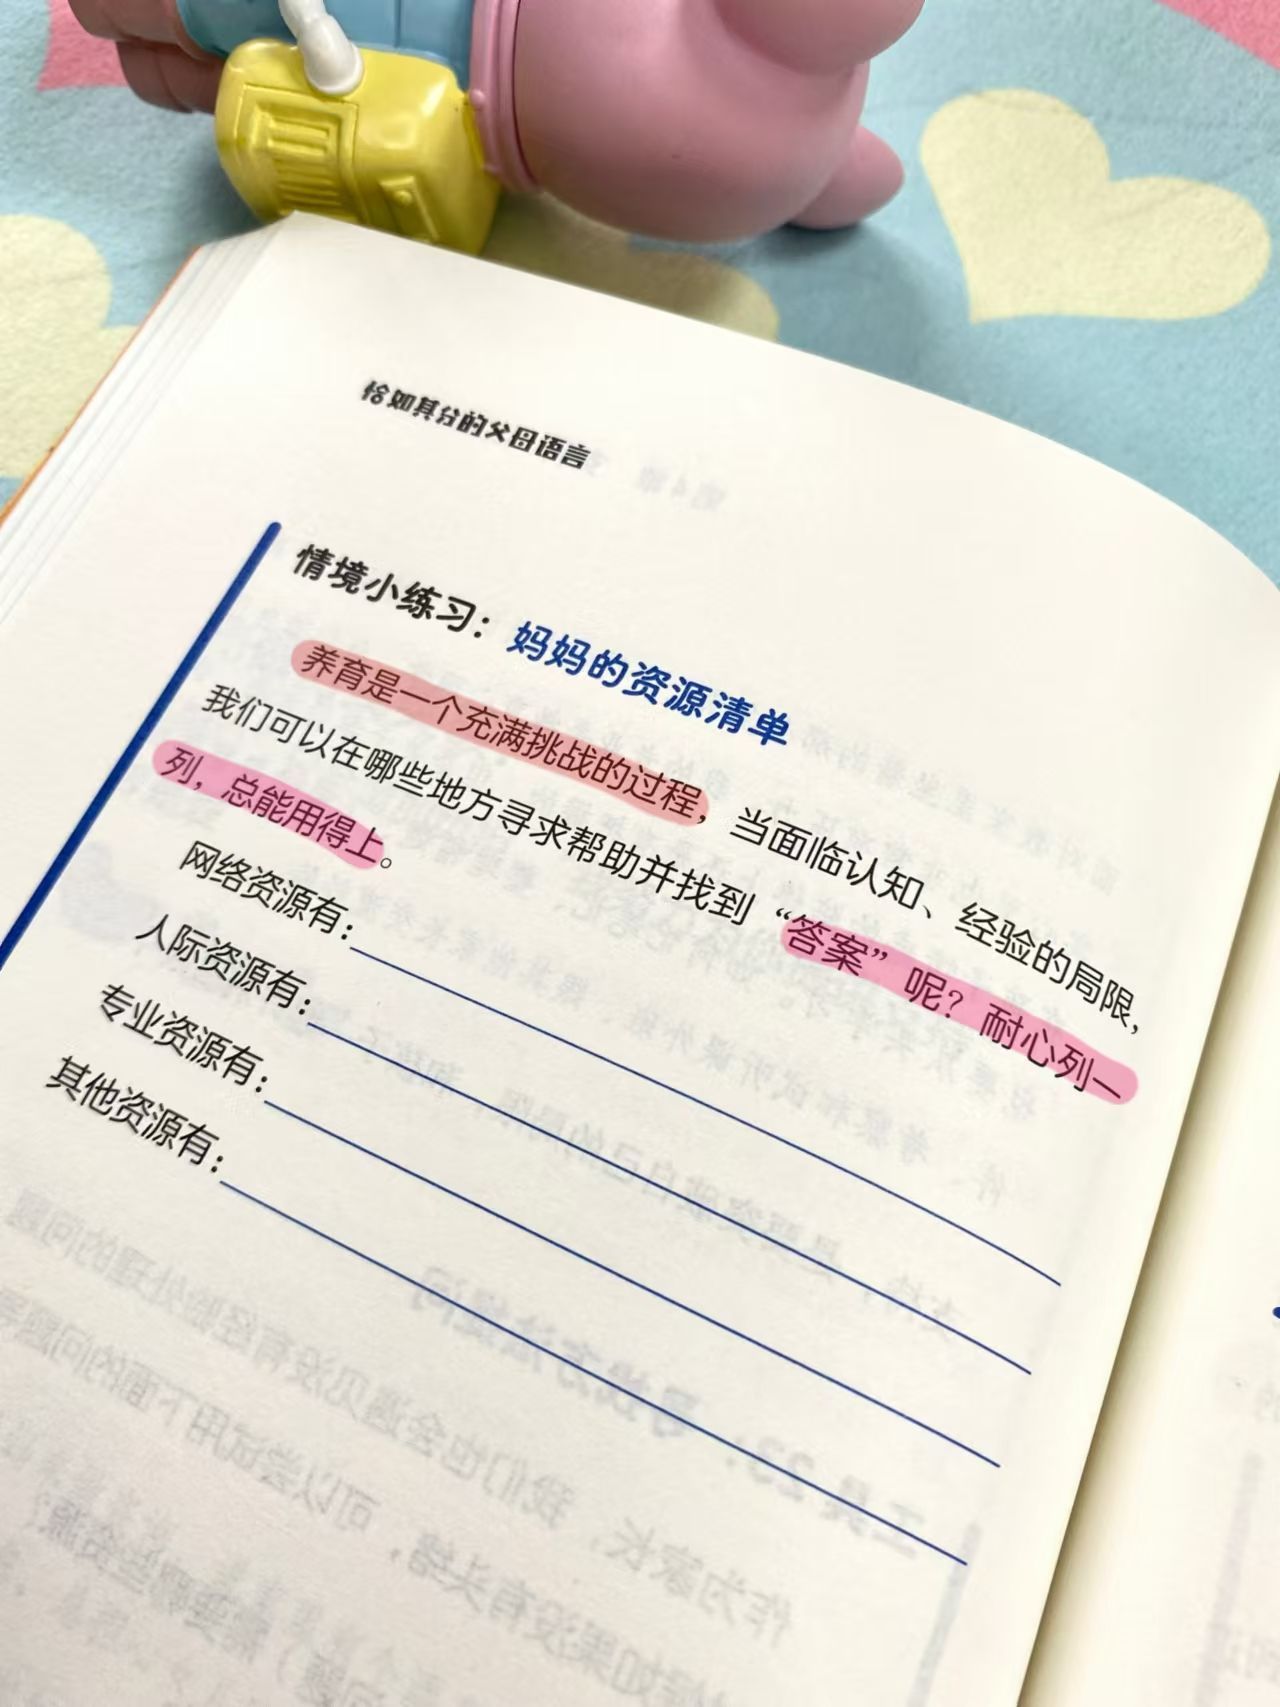 恰如其分的父母语言
情境小练习：妈妈的资源清单
养育是一个充满挑战的过程，当面临认知、经验的局限，
我们可以在哪些地方寻求帮助并找到“答案”呢？耐心列一
列，总能用得上。
网络资源有：
人际资源有：
专业资源有：
其他资源有：